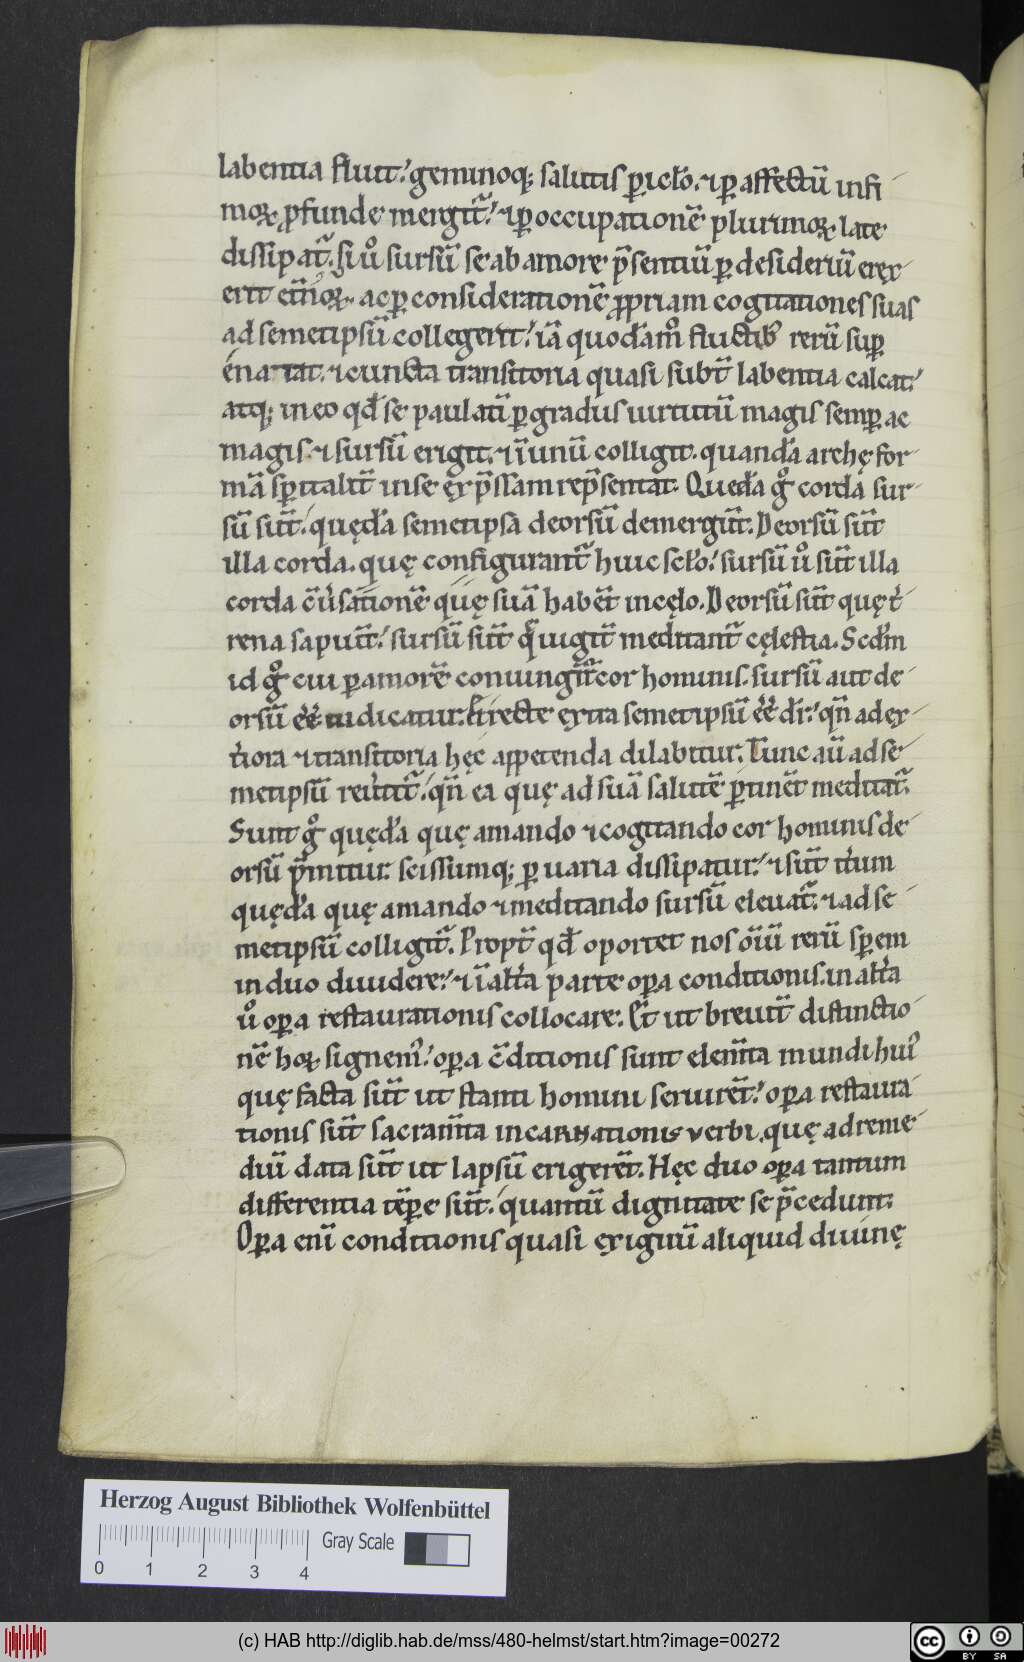 labentia fluit. geminoq; salutis ꝑiclo. ⁊ ꝑ affectū infi
moꝝ ꝓfunde mergit̃. ⁊ ꝑ occupationē plurimoꝝ late
dissipat̃. Si ů sursū se ab amore p̄sentiū ꝑ desideriū erex
erit et̄noꝝ. ac ꝑ considerationē ꝓpriam cogitationes suas
ad semetipsū collegerit. iā quodam̊ fluctib; rerū suꝑ
enatat. ⁊ cuncta transitoria quasi subt̄ labentia calcat.
atq; in eo qđ se paulatī ꝑ gradus uirtutū magis semꝑ ac
magis. ⁊ sursū erigit. ⁊ ī unū colligit. quandā archę for
mā sp̄italit̄ in se expssam rep̄sentat. Quedā g̊ corda sur
sū sūt. quędā semetipsa deorsū demergūt. Deorsū sūt
illa corda. quę configurant̃ huic sclo. sursū ů sūt illa
corda c̄ůsationē quę suā habēt in cęlo. Deorsū sūt quę t̉
rena sapiūt. sursū sūt q̄ iugit̄ meditant̃ cęlestia. Scdm
id g̊ cui ꝑ amorē coniungit̃ cor hominis. sursū aut de
orsū ee̅ iudicatur. Et recte extra semetipsū ee̅ dr̄. qn̄ ad ex
t̉iora ⁊ transitoria hęc appetenda dilabitur. Tunc aū ad se
metipsū reůtit̃. qn̄ ea quę ad suā salutē ꝑtinēt meditat̃.
Sunt g̊ quędā quę amando ⁊ cogitando cor hominis de
orsū p̄mitur. scissumq; ꝑ uaria dissipatur. ⁊ sūt it̉um
quędā quę amando ⁊ meditando sursū eleuat̃. ⁊ ad se
metipsū colligit̃. Propt̄ qđ oportet nos oīū rerū spem
in duo diuidere. ⁊ ī alt̉a parte oꝑa conditionis. in alt̉a
ů oꝑa restaurationis collocare. Et ut breuit̄ distinctio
nē hoꝝ signem᷒. oꝑa c̄ditionis sunt elem̄ta mundi hui᷒
quę facta sūt ut stanti homini seruirēt. oꝑa restaura
tionis sūt sacram̄ta incarnationis verbi. quę ad reme
diū data sūt ut lapsū erigerēt. Hęc duo oꝑa tantum
differentia tēꝑe sūt. quantū dignitate se p̄cedunt.
Oꝑa enī conditionis quasi exiguū aliquid diuinę
Herzog August Bibliothek Wolfenbüttel
Gray Scale
0 1 2 3 4
(c) HAB http://diglib.hab.de/mss/480-helmst/start.htm?image=00272
cc BY SA